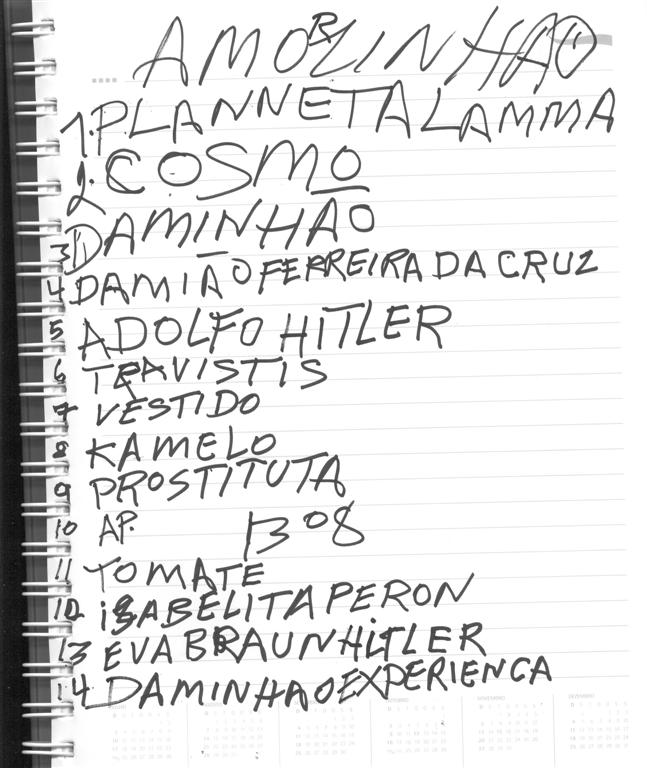 AMORZINHÃO
1. PLANNETA LAMMA
2. COSMO
3 DAMINHÃO
4 DAMIÃO FERREIRA DA CRUZ
5 ADOLFO HITLER
6 TRAVISTIS
7 VESTIDO
8 KAMELO
9 PROSTITUTA
10 AP. 1308
11 TOMATE
12 ISABELITA PERON
13 EVA BRAUN HITLER
14 DAMINHAO EXPERIENCA